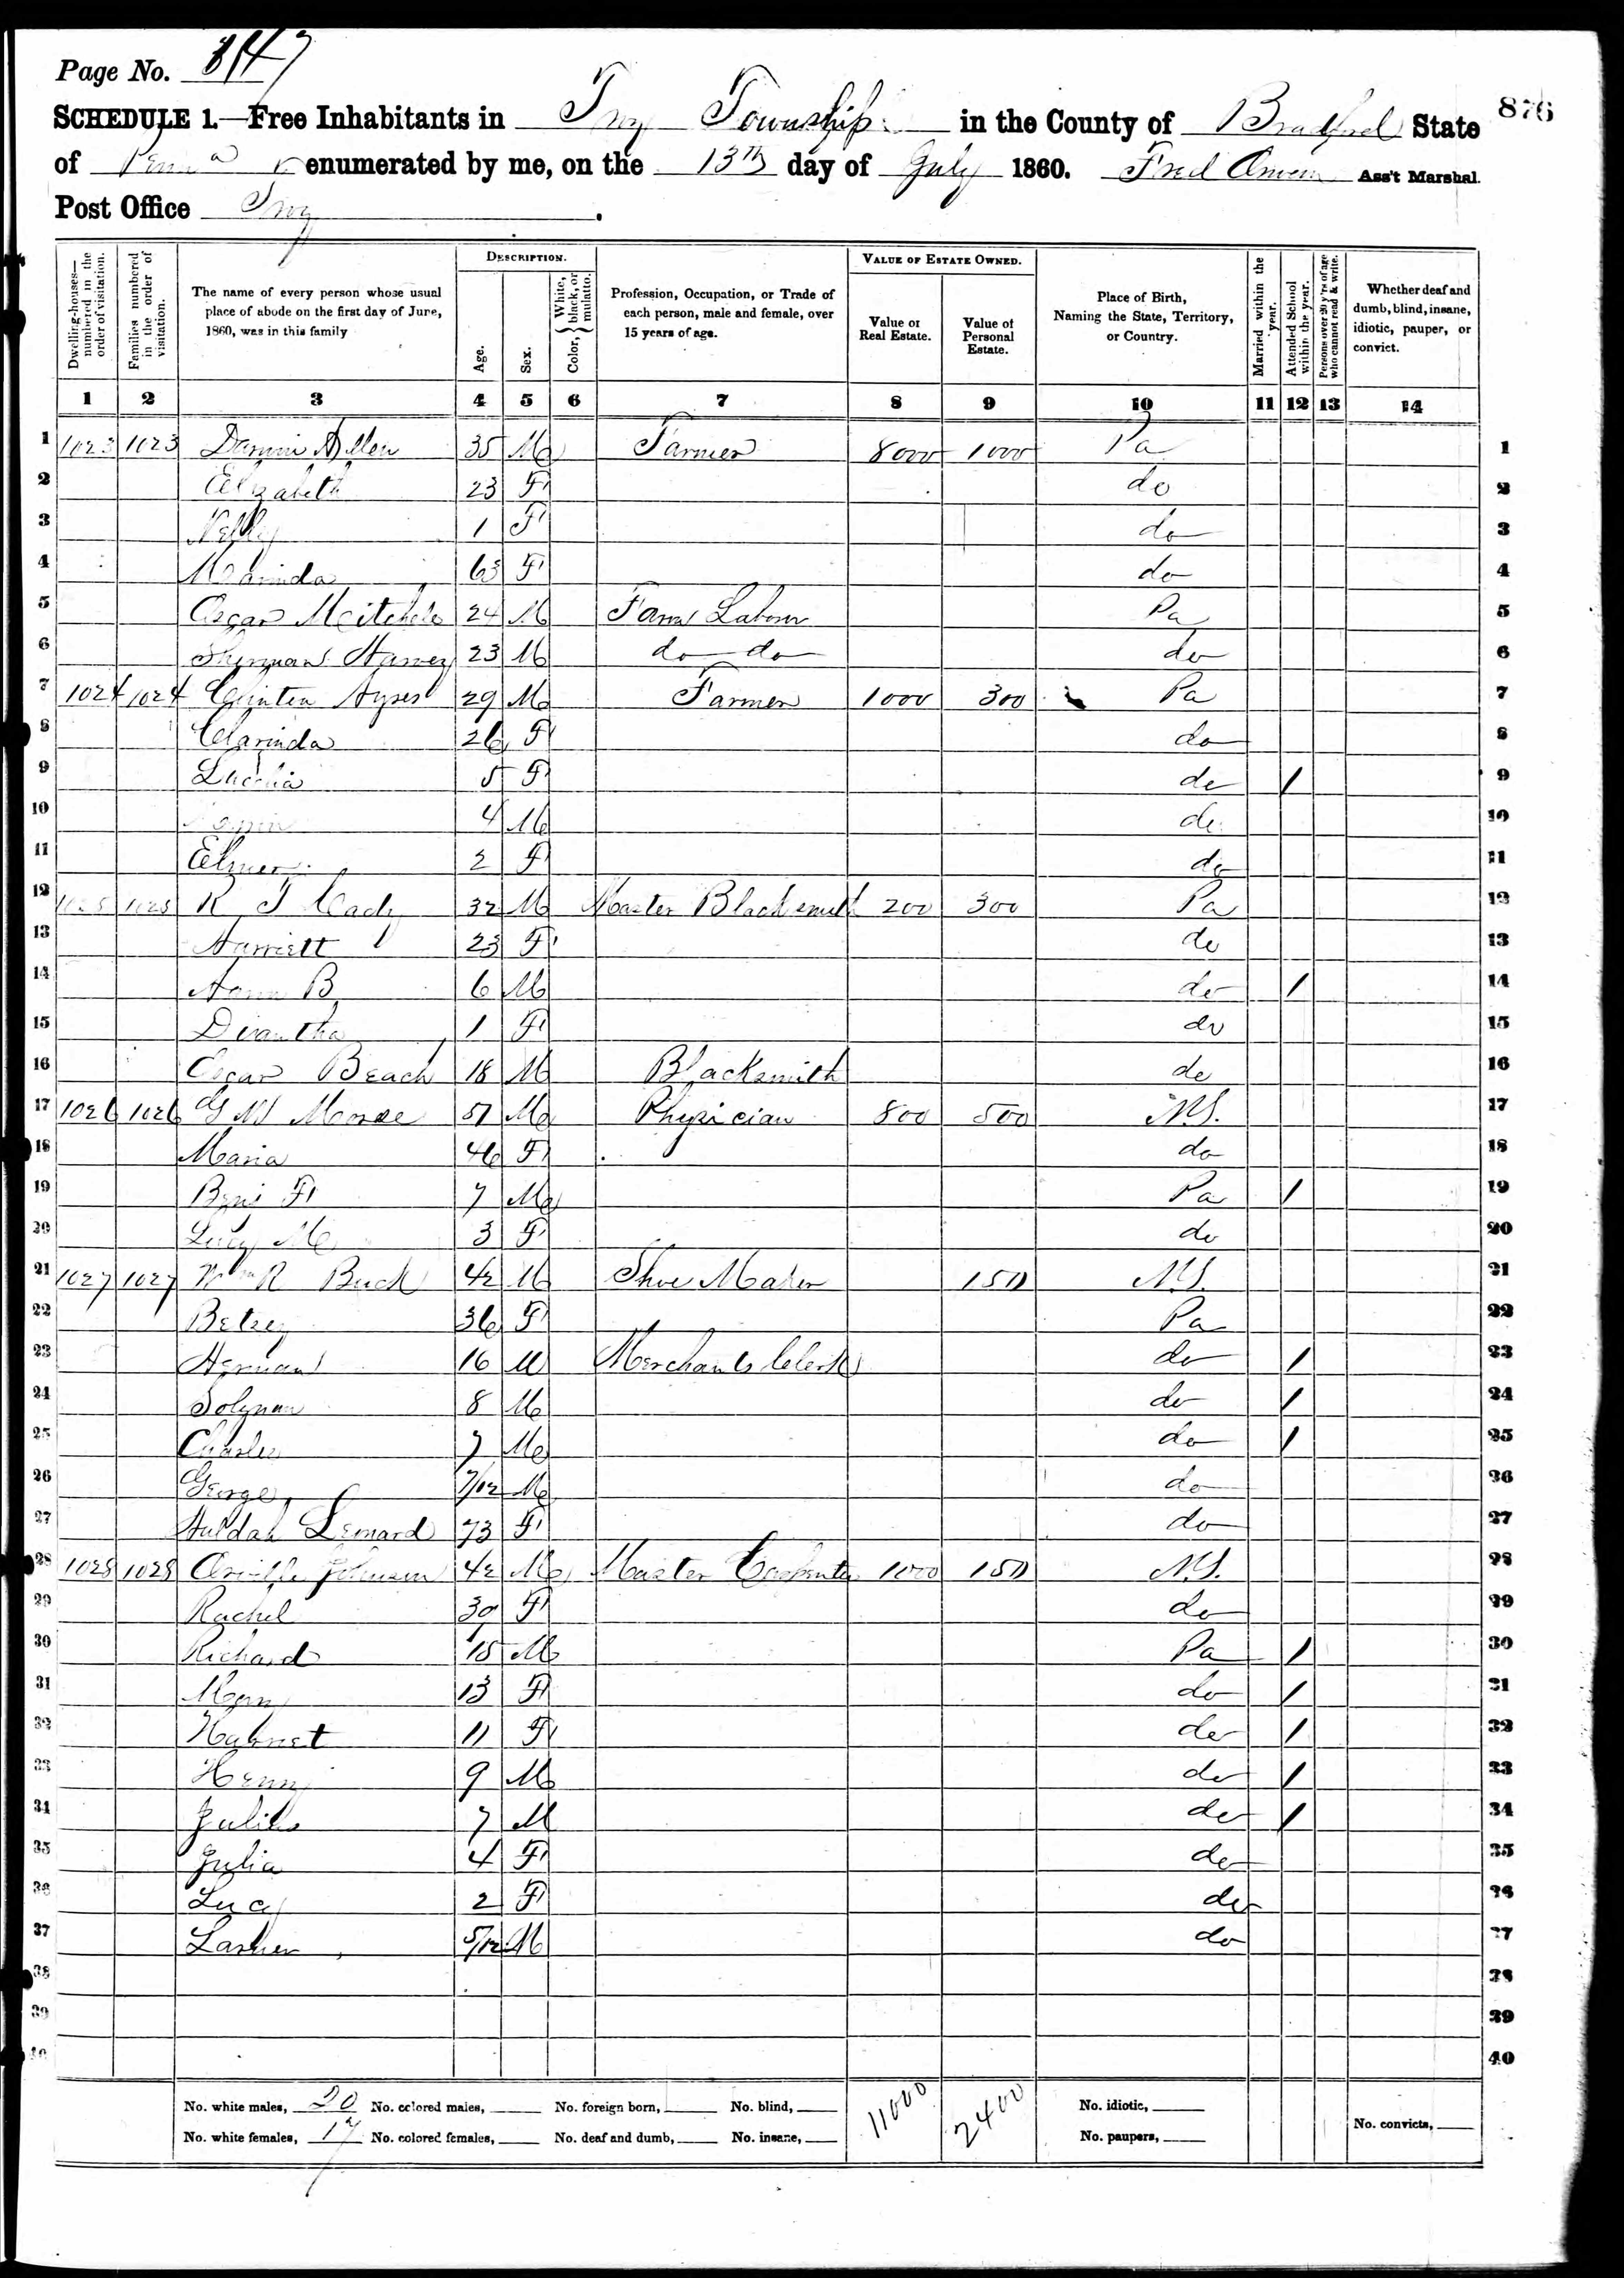 Page No. 147
876
SCHEDULE 1.—Free Inhabitants in Troy Township in the County of Bradford State
of Penna enumerated by me, on the 13th day of July 1860. Fred Ass't Marshal.
Post Office Troy.
DESCRIPTION. VALUE OF ESTATE OWNED.
Dwelling-houses—numbered in the order of visitation. Families numbered in the order of visitation. The name of every person whose usual place of abode on the first day of June, 1860, was in this family Age. Sex. Color, White, black, or mulatto. Profession, Occupation, or Trade of each person, male and female, over 15 years of age. Value of Real Estate. Value of Personal Estate. Place of Birth, Naming the State, Territory, or Country. Married within the year. Attended School within the year. Persons over 20 y'rs of age who cannot read & write. Whether deaf and dumb, blind, insane, idiotic, pauper, or convict.
1 2 3 4 5 6 7 8 9 10 11 12 13 14
1 1023 1023 Allen 35 M Farmer 8000 1000 Pa 1
2 Elizabeth 23 F do 2
3 Nelly 1 F do 3
4 Marinda 63 F do 4
5 Oscar Mitchele 24 M Farm Laborer Pa 5
6 Sherman Harvey 23 M do do do 6
7 1024 1024 Quinten Ayres 29 M Farmer 1000 300 Pa 7
8 Clarinda 26 F do 8
9 5 F do / 9
10 4 M do 10
11 Elmer 2 F do 11
12 1025 1025 R T Cady 32 M Master Blacksmith 200 300 Pa 12
13 Harriett 23 F do 13
14 B 6 M do / 14
15 Diantha 1 F do 15
16 Oscar Beach 18 M Blacksmith do 16
17 1026 1026 G W Morse 51 M Physician 800 500 N.Y. 17
18 Maria 46 F do 18
19 Benj F 7 M Pa / 19
20 Lucy M 3 F do 20
21 1027 1027 Wm R Buck 42 M Shoe Maker 150 N.Y. 21
22 Betsey 36 F Pa 22
23 Herman 16 M Merchants Clerk do / 23
24 Solyman 8 M do / 24
25 Charles 7 M do / 25
26 George 7/12 M do 26
27 Huldah Lenard 73 F do 27
28 1028 1028 Orville Johnson 42 M Master Carpenter 1000 150 N.Y. 28
29 Rachel 30 F do 29
30 Richard 15 M Pa / 30
31 Mary 13 F do / 31
32 11 F do / 32
33 Henry 9 M do / 33
34 Julius 7 M do / 34
35 Julia 4 F do 35
36 Lucy 2 F do 36
37 5/12 M do 37
38 38
39 39
40 40
No. white males, 20 No. colored males, No. foreign born, No. blind, 11000 2400 No. idiotic, No. convicts,
No. white females, 17 No. colored females, No. deaf and dumb, No. insane, No. paupers,